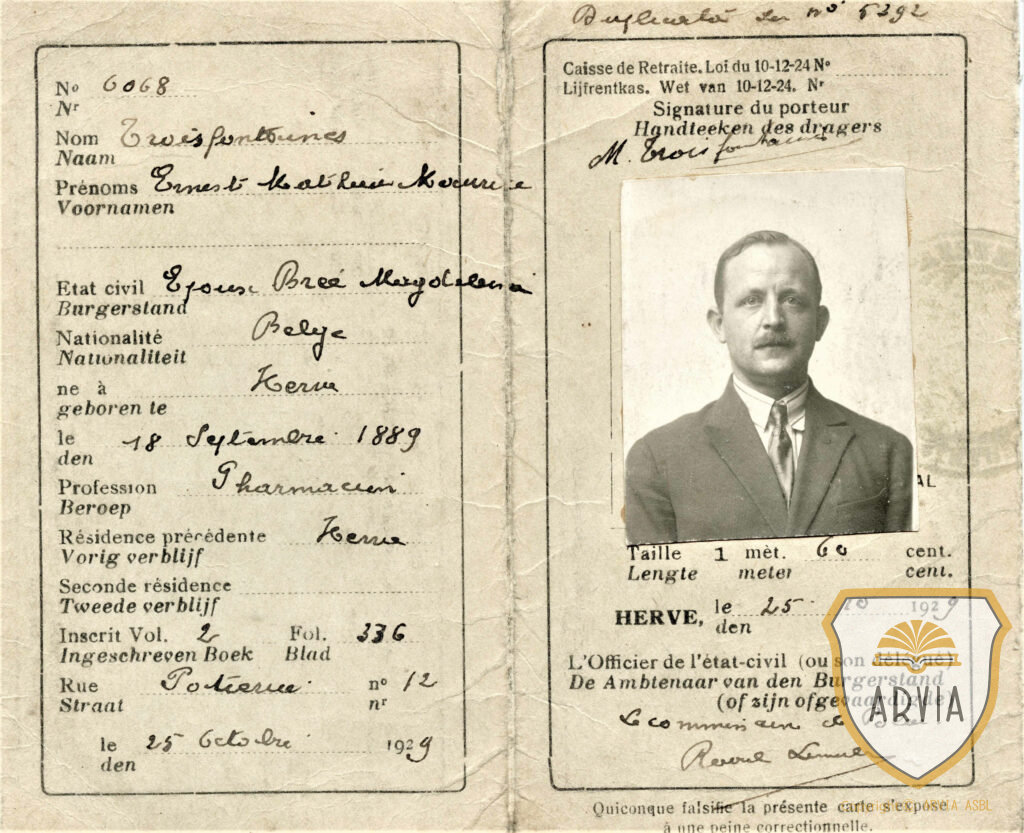 Duplicata du n° 5392
N° 6068
Nr
Nom Troisfontaines
Naam
Prénoms Ernest Mathieu Maurice
Voornamen
Etat civil Epoux Breé Magdelena
Burgerstand
Nationalité Belge
Nationaliteit
ne à Herve
geboren te
le 18 Septembre 1889
den
Profession Pharmacien
Beroep
Résidence précédente Herve
Vorig verblijf
Seconde résidence
Tweede verblijf
Inscrit Vol. 2 Fol. 336
Ingeschreven Boek Blad
Rue Potierue n° 12
Straat nr
le 25 Octobre 1929
den
Caisse de Retraite. Loi du 10-12-24 N°
Lijfrentkas. Wet van 10-12-24. Nr
Signature du porteur
Handteeken des dragers
M. Troisfontaines
AL
Taille 1 mèt. 60 cent.
Lengte meter cent.
HERVE, le 25 10 1929
den
L'Officier de l'état-civil (ou son délégué)
De Ambtenaar van den Burgerstand
(of zijn ofgevaardigde)
Le commissaire de
Raoul
ARVIA
ARVIA ASBL
Quiconque falsifie la présente carte s'expose
à une peine correctionnelle.